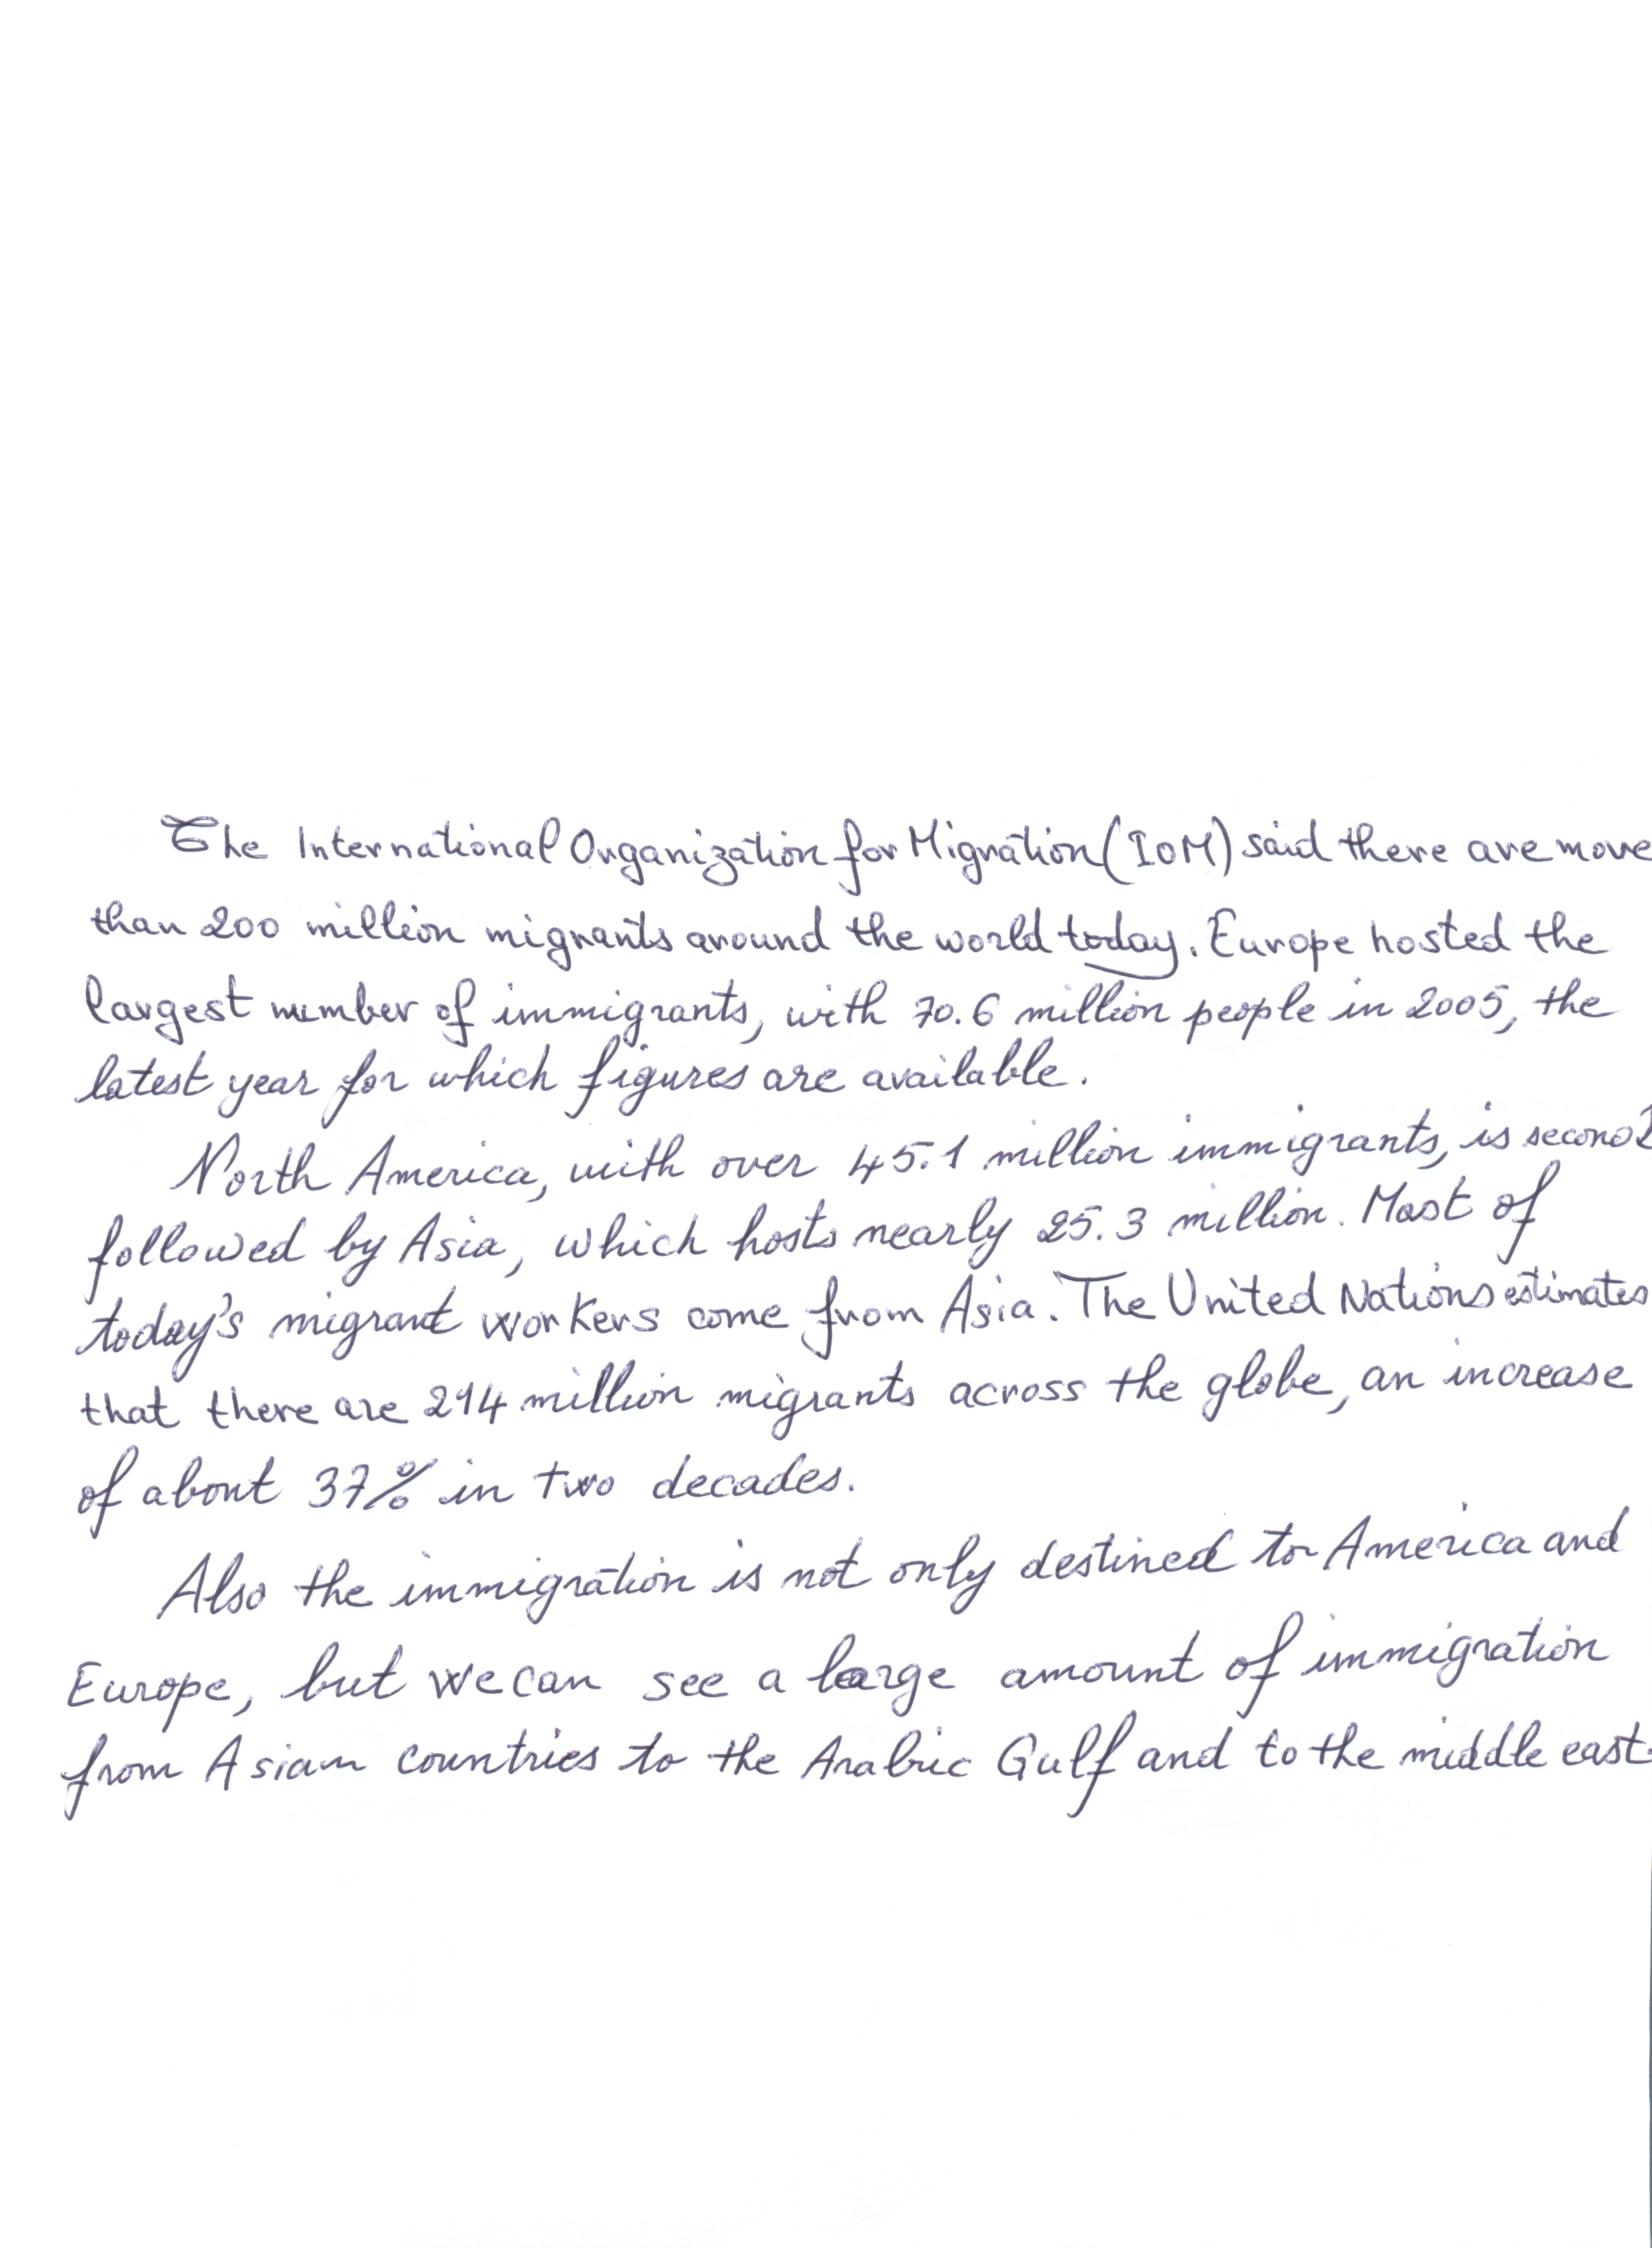 The International Organization for Migration (IOM) said there are more
than 200 million migrants around the world today. Europe hosted the
largest number of immigrants, with 70.6 million people in 2005, the
latest year for which figures are available.
North America, with over 45.1 million immigrants, is second
followed by Asia, which hosts nearly 25.3 million. Most of
today's migrant workers come from Asia. The United Nations estimates
that there are 214 million migrants across the globe, an increase
of about 37% in two decades.
Also the immigration is not only destined to America and
Europe, but we can see a large amount of immigration
from Asian countries to the Arabic Gulf and to the middle east.